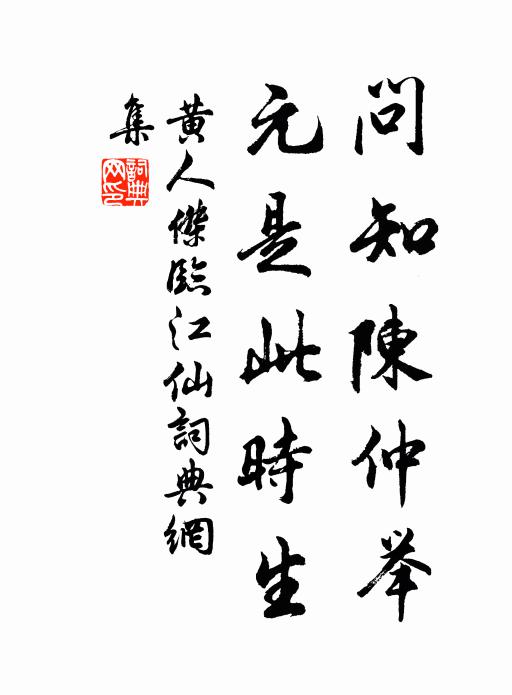 问知陳仲举
元是此時生
黄人傑臨江仙詞典網
集
詞典网印